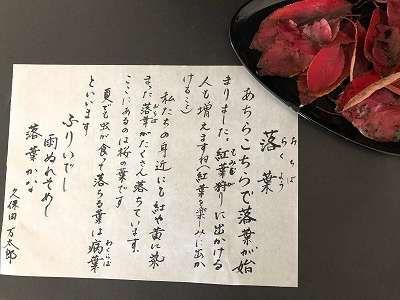 落葉
おちば
らくよう
あちらこちらで落葉が始
まりました。紅葉狩りに出かける
もみじが
人も増えますね(紅葉を楽しみに出か
けること)
私たちの身近にも紅や黄に染
まった落葉がたくさん落ちています。
ここにあるのは桜の葉です
夏でも虫が食って落ちる葉は病葉
わくらば
といいます
ふりいでし
雨ぬれそめし
落葉かな
久保田万太郎